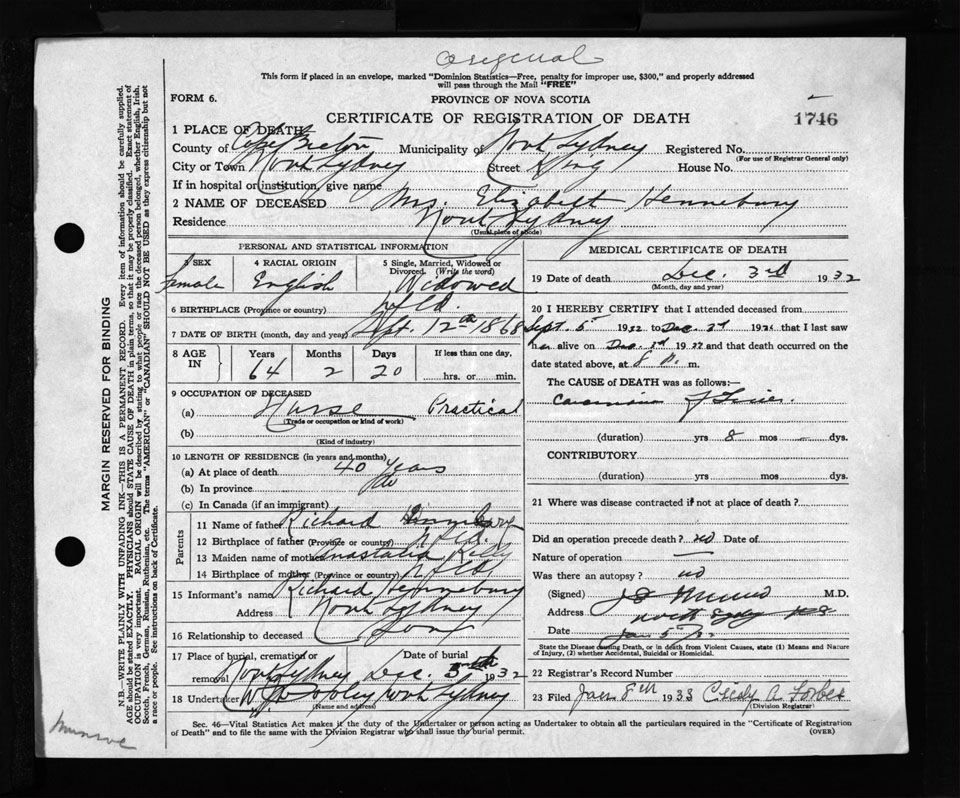 Original
This form if placed in an envelope, marked "Dominion Statistics—Free, penalty for improper use, $300," and properly addressed
will pass through the Mail "FREE"
FORM 6.
PROVINCE OF NOVA SCOTIA
CERTIFICATE OF REGISTRATION OF DEATH
1746
1 PLACE OF DEATH
County of Cape Breton Municipality of North Sydney Registered No.
(For use of Registrar General only)
City or Town North Sydney Street King House No.
If in hospital or institution, give name
2 NAME OF DECEASED Mrs. Elizabeth Hennebury
Residence North Sydney
(Usual place of abode)
PERSONAL AND STATISTICAL INFORMATION
3 SEX 4 RACIAL ORIGIN 5 Single, Married, Widowed or Divorced. (Write the word)
Female English Widowed
6 BIRTHPLACE (Province or country) Nfld.
7 DATE OF BIRTH (month, day and year) Sept. 12th 1868
8 AGE IN Years Months Days If less than one day,
64 2 20 hrs. or min.
9 OCCUPATION OF DECEASED
(a) Nurse Practical
(Trade or occupation or kind of work)
(b)
(Kind of industry)
10 LENGTH OF RESIDENCE (in years and months)
(a) At place of death 40 years
(b) In province do
(c) In Canada (if an immigrant)
Parents
11 Name of father Richard
12 Birthplace of father (Province or country) Nfld.
13 Maiden name of mother Anastatia Kelly
14 Birthplace of mother (Province or country) Nfld
15 Informant's name Richard Hennebury
Address North Sydney
16 Relationship to deceased Son
17 Place of burial, cremation or removal Date of burial
North Sydney Dec. 5th 1932
18 Undertaker North Sydney
(Name and address)
MEDICAL CERTIFICATE OF DEATH
19 Date of death Dec. 3rd 1932
(Month, day and year)
20 I HEREBY CERTIFY that I attended deceased from
Sept. 5 1932 to Dec 3d 193 that I last saw
her alive on Dec 3d 19 and that death occurred on
date stated above, at 8 P. m.
The CAUSE OF DEATH was as follows:—
Carcinoma of Liver.
(duration) yrs 8 mos — dys.
CONTRIBUTORY
(duration) yrs mos dys.
21 Where was disease contracted if not at place of death?
Did an operation precede death? no Date of
Nature of operation —
Was there an autopsy? no
(Signed) Munro M.D.
Address North Sydney N S
Date Jan 5
State the Disease causing Death, or in death from Violent Causes, state (1) Means and Nature
of Injury, (2) whether Accidental, Suicidal or Homicidal.
22 Registrar's Record Number
23 Filed Jan 8th 1933 Cicily A. Forbes
(Division Registrar)
Sec. 46—Vital Statistics Act makes it the duty of the Undertaker or person acting as Undertaker to obtain all the particulars required in the "Certificate of Registration
of Death" and to file the same with the Division Registrar who shall issue the burial permit.
(OVER)
MARGIN RESERVED FOR BINDING
N.B.—WRITE PLAINLY WITH UNFADING INK—THIS IS A PERMANENT RECORD. Every item of information should be carefully supplied.
AGE should be stated EXACTLY. PHYSICIANS should STATE CAUSE OF DEATH in plain terms, so that it may be properly classified. Exact statement of
OCCUPATION is very important. RACIAL ORIGIN will be described by stating to what people or race the deceased person belonged, whether English, Irish,
Scotch, French, German, Russian, Ruthenian, etc. The terms "AMERICAN" or "CANADIAN" SHOULD NOT BE USED as they express citizenship but not
a race or people. See instructions on back of Certificate.
Munroe